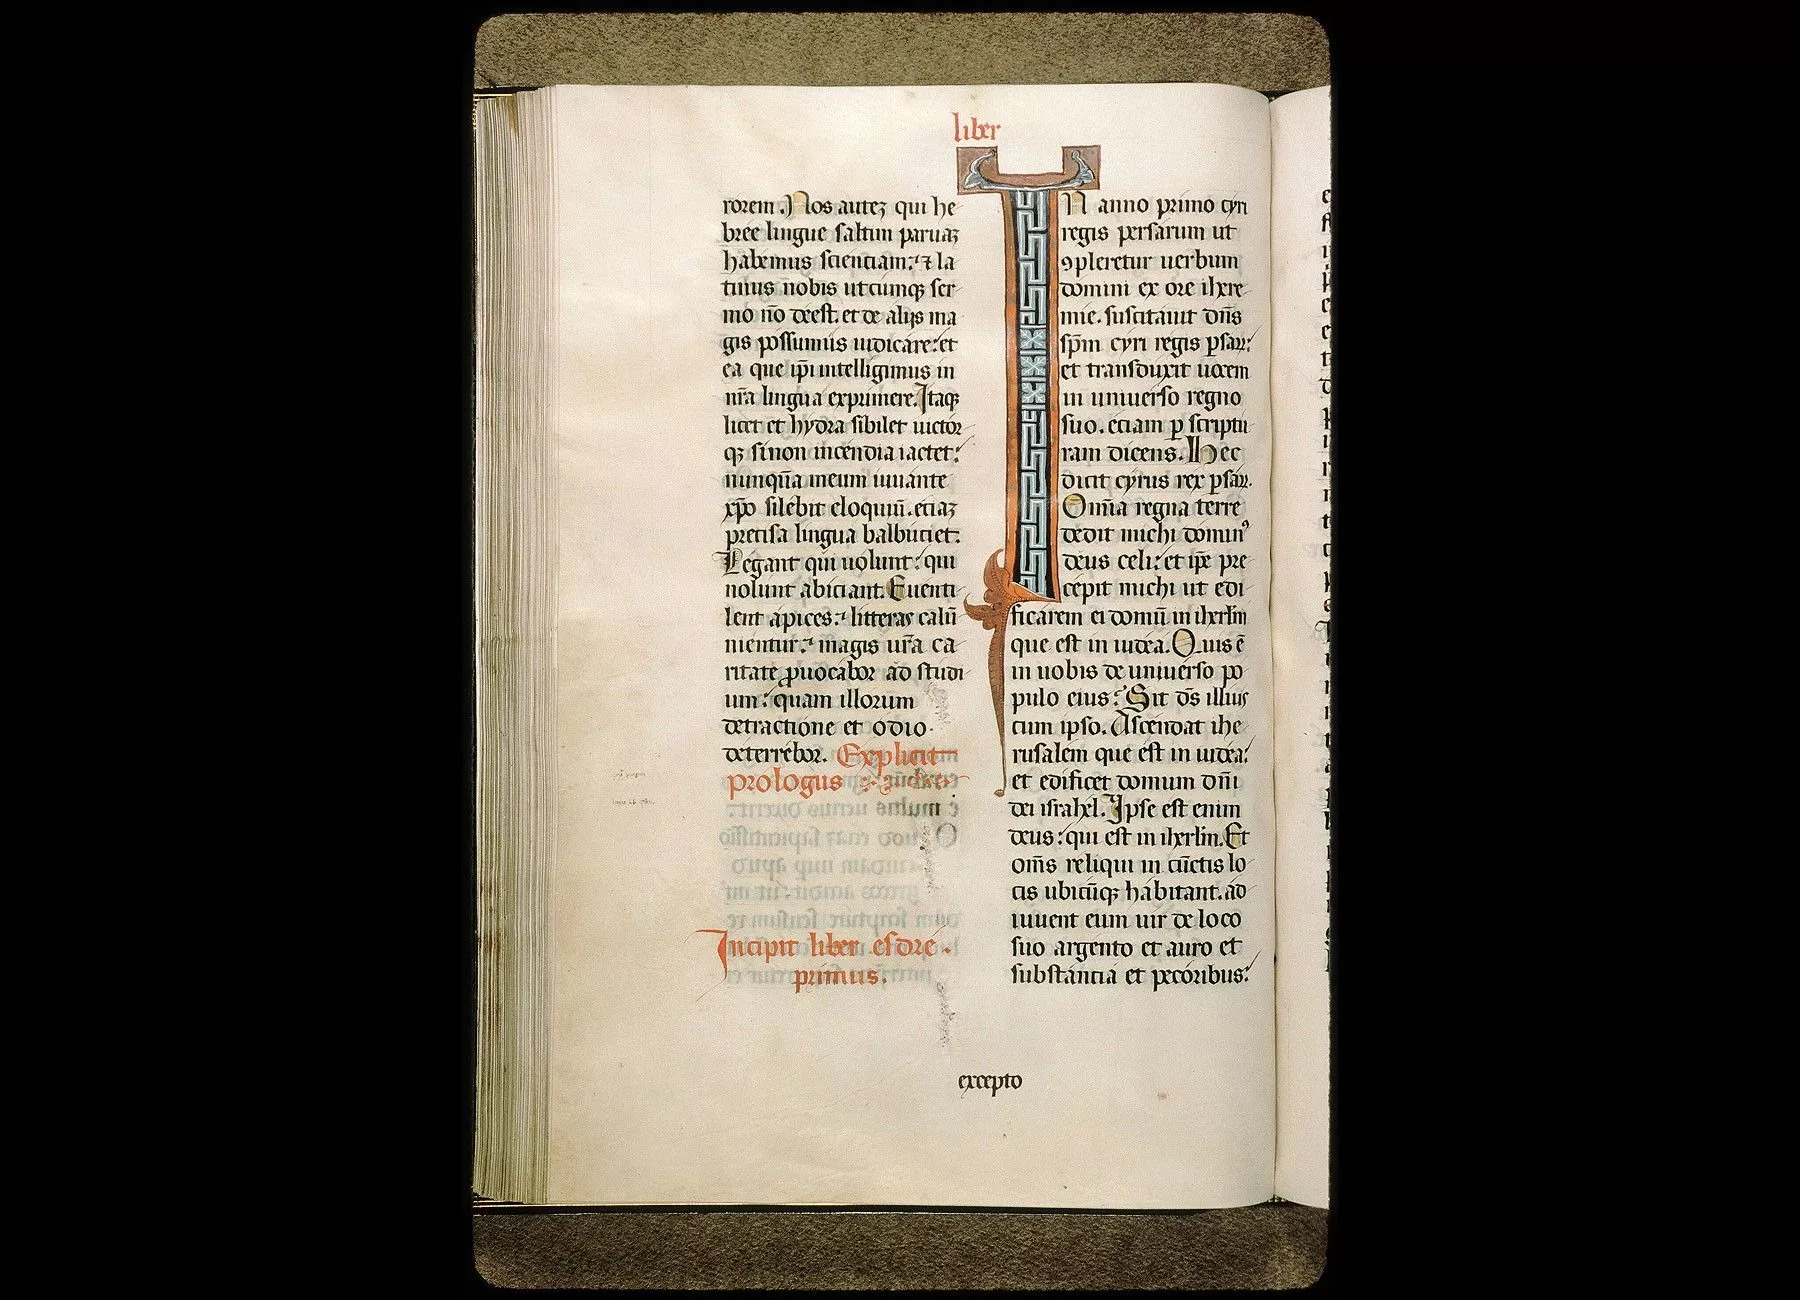 liber
rorem. Nos autez qui he
bree lingue saltim paruaz
habemus scientiam: ⁊ la
tinus nobis utcunqꝫ ser
mo nō deest. et de alijs ma
gis possumus iudicare: et
ea que ip̄i intelligimus in
nr̄a lingua exprimere. Itaqꝫ
licet et hydra sibilet uictor
qꝫ sinon incendia iactet:
nunqūa meum iuuante
xp̄o silebit eloquiū. etiaz
precisa lingua balbuciet.
Legant qui uolunt: qui
nolunt abiciant. Euenti
lent apices: ⁊ litteras calū
nientur: ⁊ magis ur̄a ca
ritate ꝓuocabor ad studi
um: quam illorum
detractione et odio
deterrebor. Explicit
prologus
Incipit liber esdre
primus.
IN anno primo cyri
regis persarum ut
ꝯpleretur uerbum
domini ex ore ihere
mie. suscitauit dn̄s
sp̄m cyri regis ꝑsaꝝ:
et transduxit uocem
in uniuerso regno
suo. etiam ꝑ scriptu
ram dicens. Hec
dicit cyrus rex ꝑsaꝝ.
Om̄ia regna terre
dedit michi dominꝰ
deus celi: et ip̄e pre
cepit michi ut edi
ficarem ei domū in ihrl̄m
que est in iudea. Quis ē
in uobis de uniuerso po
pulo eius: Sit ds̄ illius
cum ipso. Ascendat ihe
rusalem que est in iudea:
et edificet domum dn̄i
dei israhel. Ipse est enim
deus: qui est in iherl̄m. Et
om̄s reliqui in cūctis lo
cis ubicūqꝫ habitant. ad
iuuent eum uir de loco
suo argento et auro et
substancia et pecoribus:
excepto